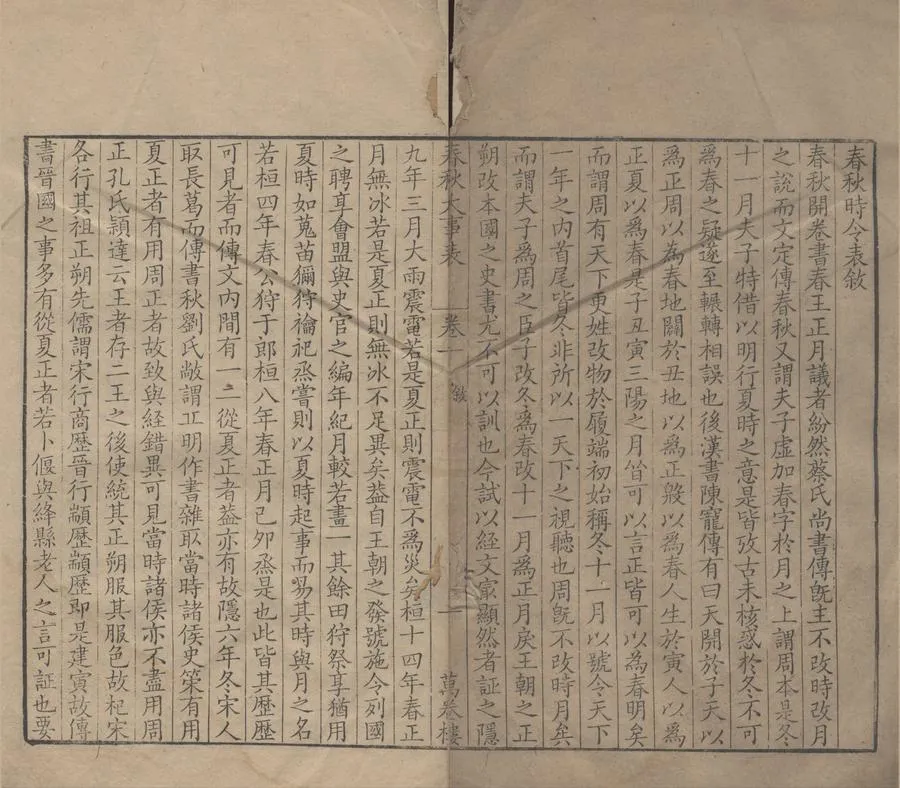 春秋時令表敘
春秋開卷書春王正月議者紛然蔡氏尚書傳旣主不改時改月
之說而文定傳春秋又謂夫子虛加春字於月之上謂周本是冬
十一月夫子特借以明行夏時之意是皆攷古未核惑於冬不可
爲春之疑遂至輾轉相誤也後漢書陳寵傳有曰天開於子天以
爲正周以為春地闢於丑地以爲正殷以為春人生於寅人以爲
正夏以為春是子丑寅三陽之月皆可以言正皆可以為春明矣
而謂周有天下更姓改物於履端初始稱冬十一月以號令天下
一年之內首尾皆冬非所以一天下之視聽也周旣不改時月矣
而謂夫子爲周之臣子改冬爲春改十一月為正月戾王朝之正
朔改本國之史書尤不可以訓也今試以經文㝡顯然者証之隱
春秋大事表 卷一 敘 一 萬卷樓
九年三月大雨震電若是夏正則震電不爲災矣桓十四年春正
月無冰若是夏正則無冰不足異矣葢自王朝之發號施令列國
之聘享會盟與史官之編年紀月較若畫一其餘田狩祭享猶用
夏時如蒐苗獮狩禴祀烝嘗則以夏時起事而易其時與月之名
若桓四年春公狩于郎桓八年春正月己卯烝是也此皆其歷歷
可見者而傳文內間有一二從夏正者葢亦有故隱六年冬宋人
取長葛而傳書秋劉氏敞謂丘明作書雜取當時諸侯史策有用
夏正者有用周正者故致與經錯異可見當時諸侯亦不盡用周
正孔氏穎達云王者存二王之後使統其正朔服其服色故杞宋
各行其祖正朔先儒謂宋行商歷晉行顓歷顓歷即是建寅故傳
書晉國之事多有從夏正者若卜偃與絳縣老人之言可証也要